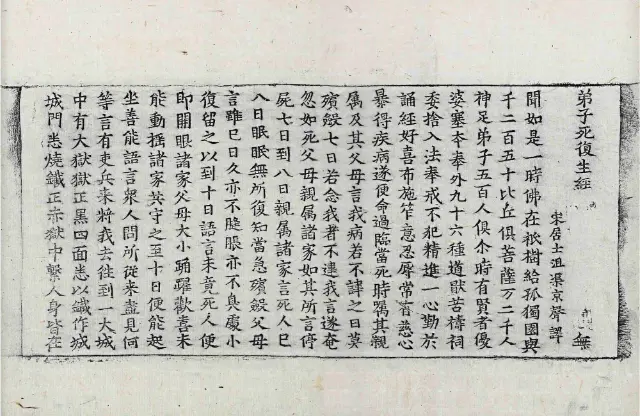 弟子死復生經　無
宋居士沮渠京聲　譯
聞如是一時佛在祇樹給孤獨園與
千二百五十比丘俱菩薩万二千人
神足弟子五百人俱尒時有賢者優
婆塞本奉外九十六種道猒苦禱祠
委捨入法奉戒不犯精進一心勤於
誦經好喜布施笮意忍辱常有慈心
暴得疾病遂便命過臨當死時囑其親
属及其父母言我病若不諱之日莫
殯殮七日若念我者不違我言遂奄
忽如死父母親属諸家如其所言停
屍七日到八日親属諸家言死人已
八日眠眠無所復知當急殯殮父母
言雖已日久亦不膖脹亦不臭處小
復留之以到十日語言未竟死人便
即開眼諸家父母大小踊躍歡喜未
能動揺諸家共守之至十日便能起
坐善能語言衆人問所從来盡見何
等言有吏兵来將我去徃到一大城
中有大獄獄正黒四面悉以鐵作城
城門悉燒鐵正赤獄中繫人身皆在